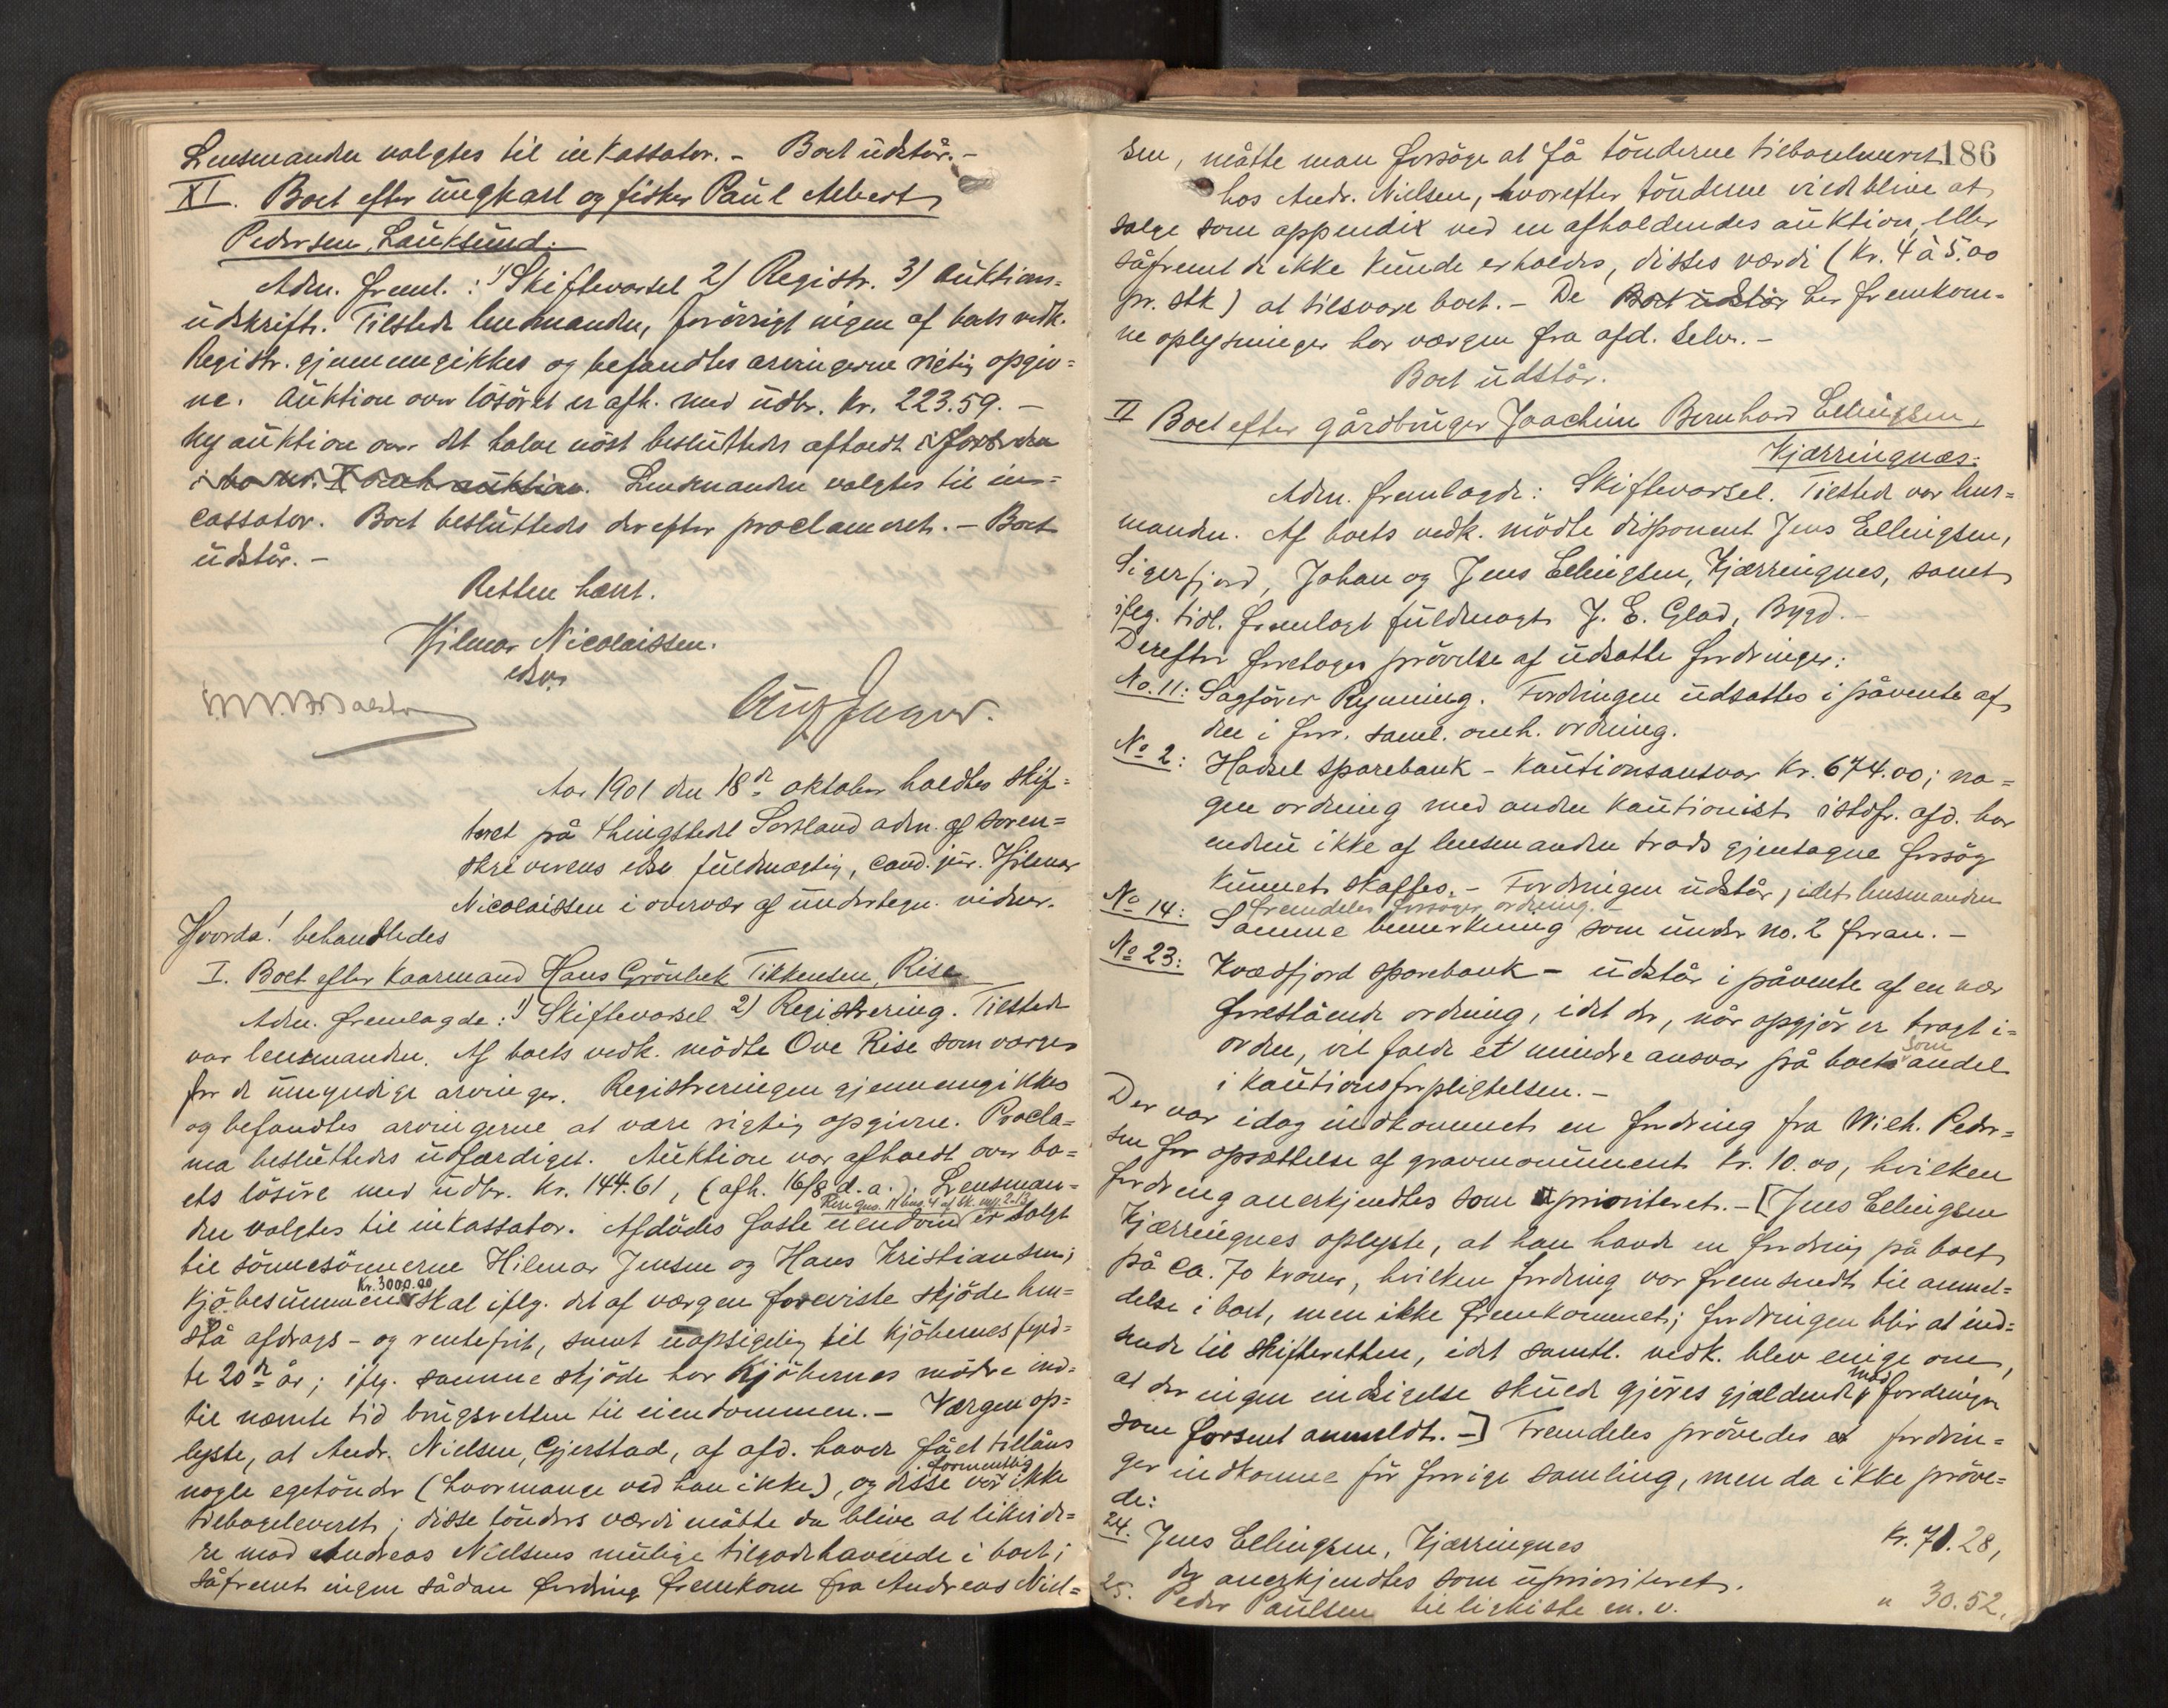 Lensmanden valgtes til inkassator. - Boet udstår. -
XI. Boet efter ungkarl og fisker Paul Albert
Pedersen, Lauksund.
Adm. freml.: 1) Skiftevarsel 2) Registr. 3) Auktions=
udskrift. Tilstede lensmanden, forövrigt ingen af boets vedk.
Registr. gjennemgikkes og befandtes arvingerne rigtig opgiv=
ne. Auktion over lösöret er afh. med udbr. kr. 223.59. -
Ny auktion over det halve nöst besluttedes afholdt i forb. den
i bo nr. X auktion. Lensmanden valgtes til in=
cassator. Boet besluttedes derefter proclameret. - Boet
udstår. -
Retten hævt.
Hilmar Nicolaissen.
edsv.
Aar 1901 den 18de oktober holdtes skif=
teret på thingstedet Sortland adm. af soren=
skriverens edsv. fuldmægtig, cand. jur. Hilmar
Nicolaissen i overvær af undertegn. vidner.
Hvorda! behandledes
I. Boet efter kaarmand Hans Grönbek Tikkensen, Rise
Adm. fremlagde: 1) Skiftevarsel 2) Registrering. Tilstede
var lensmanden. Af boets vedk. mödte Ove Rise som værge
for de umyndige arvinger. Registreringen gjennemgikkes
og befandtes arvingerne at være rigtig opgivne. Procla=
ma besluttedes udfærdiget. Auktion var afholdt over bo=
ets lösöre med udbr. kr. 144.61, (afh. 16/8 d.a.). Lensman=
den valgtes til inkassator. Afdödes faste eiendom Rise gno. 11 bno. 4 af sk. mrk 2.13 er solgt
til sönnesönnerne Hilmar Jensen og Hans Kristiansen;
kjöbesummen kr. 3000.00 skal iflg. det af værgen foreviste skjöde hen=
stå afdrags- og rentefrit, samt uopsigelig til kjöbernes fyld=
te 20de år; iflg. samme skjöde har kjöbernes mödre ind=
til nævnte tid brugsretten til eiendommen. - Værgen op=
lyste, at Andr. Nielsen, Gjerstad, af afd. havde fået tillåns
nogle egetönder (hvormange ved han ikke), og disse var formentlig ikke
tilbageleveret; disse tönders værdi måtte da blive at likvide=
re mod Andreas Nielsens mulige tilgodehavende i boet;
såfremt ingen sådan fordring fremkom fra Andreas Niel=
186
sen, måtte man forsöge at få tönderne tilbageleveret
hos Andr. Nielsen, hvorefter tönderne vilde blive at
sælge som appendix ved en afholdendes auktion, eller
såfremt de ikke kunde erholdes, disses værdi (kr. 4 à 5.00
pr. stk) at tilsvare boet. - De Boet udstår her fremkom=
ne oplysninger har værgen fra afd. selv. -
Boet udstår.
II Boet efter gårdbruger Joachim Bernhard Ellingsen,
Kjærringnæs:
Adm. fremlagde: Skiftevarsel. Tilstede var lens=
manden. Af boets vedk. mödte disponent Jens Ellingsen,
Sigerfjord, Johan og Jens Ellingsen, Kjærringnes, samt
iflg. tidl. fremlagt fuldmagt J. E. Glad, Bygd. -
Derefter foretoges prövelse af udsatte fordringer:
No. 11: Sagförer Rynning. Fordringen udsattes i påvente af
den i forr. saml. omh. ordning.
No 2: Hadsel sparebank - kautionsansvar kr. 674.00; no=
gen ordning med anden kautionist istdfr. afd. har
endnu ikke af lensmanden trods gjentagne forsög
kunnet skaffes. - Fordringen udstår, idet lensmanden
fremdeles forsöger ordning. -
No 14: Samme bemerkning som under no. 2 foran. -
No 23: Kvædfjord sparebank - udstår i påvente af en nær
forestående ordning, idet der, når opgjör er bragt i=
orden, vil falde et mindre ansvar på boet som andel
i kautionsforpligtelsen. -
Der var idag indkommet en fordring fra Wilh. Peder=
sen for opsættelse af gravmonument kr. 10.00, hvilken
fordring anerkjendtes som prioriteret. - [Jens Ellingsen
Kjærringnes oplyste, at han havde en fordring på boet
på ca. 70 kroner, hvilken fordring var fremsendt til anmel=
delse i boet, men ikke fremkommet; fordringen blir at ind=
sende til skifteretten, idet samtl. vedk. blev enige om,
at der ingen indsigelse skulde gjöres gjældende mod fordringen
som forsent anmeldt. -] Fremdeles prövedes fordrin=
ger indkomne för forrige samling, men da ikke pröve=
de:
24. Jens Ellingsen, Kjærringnes kr. 71.28,
anerkjendtes som uprioriteret.
25. Peder Paulsen til ligkiste m.v. " 30.52.